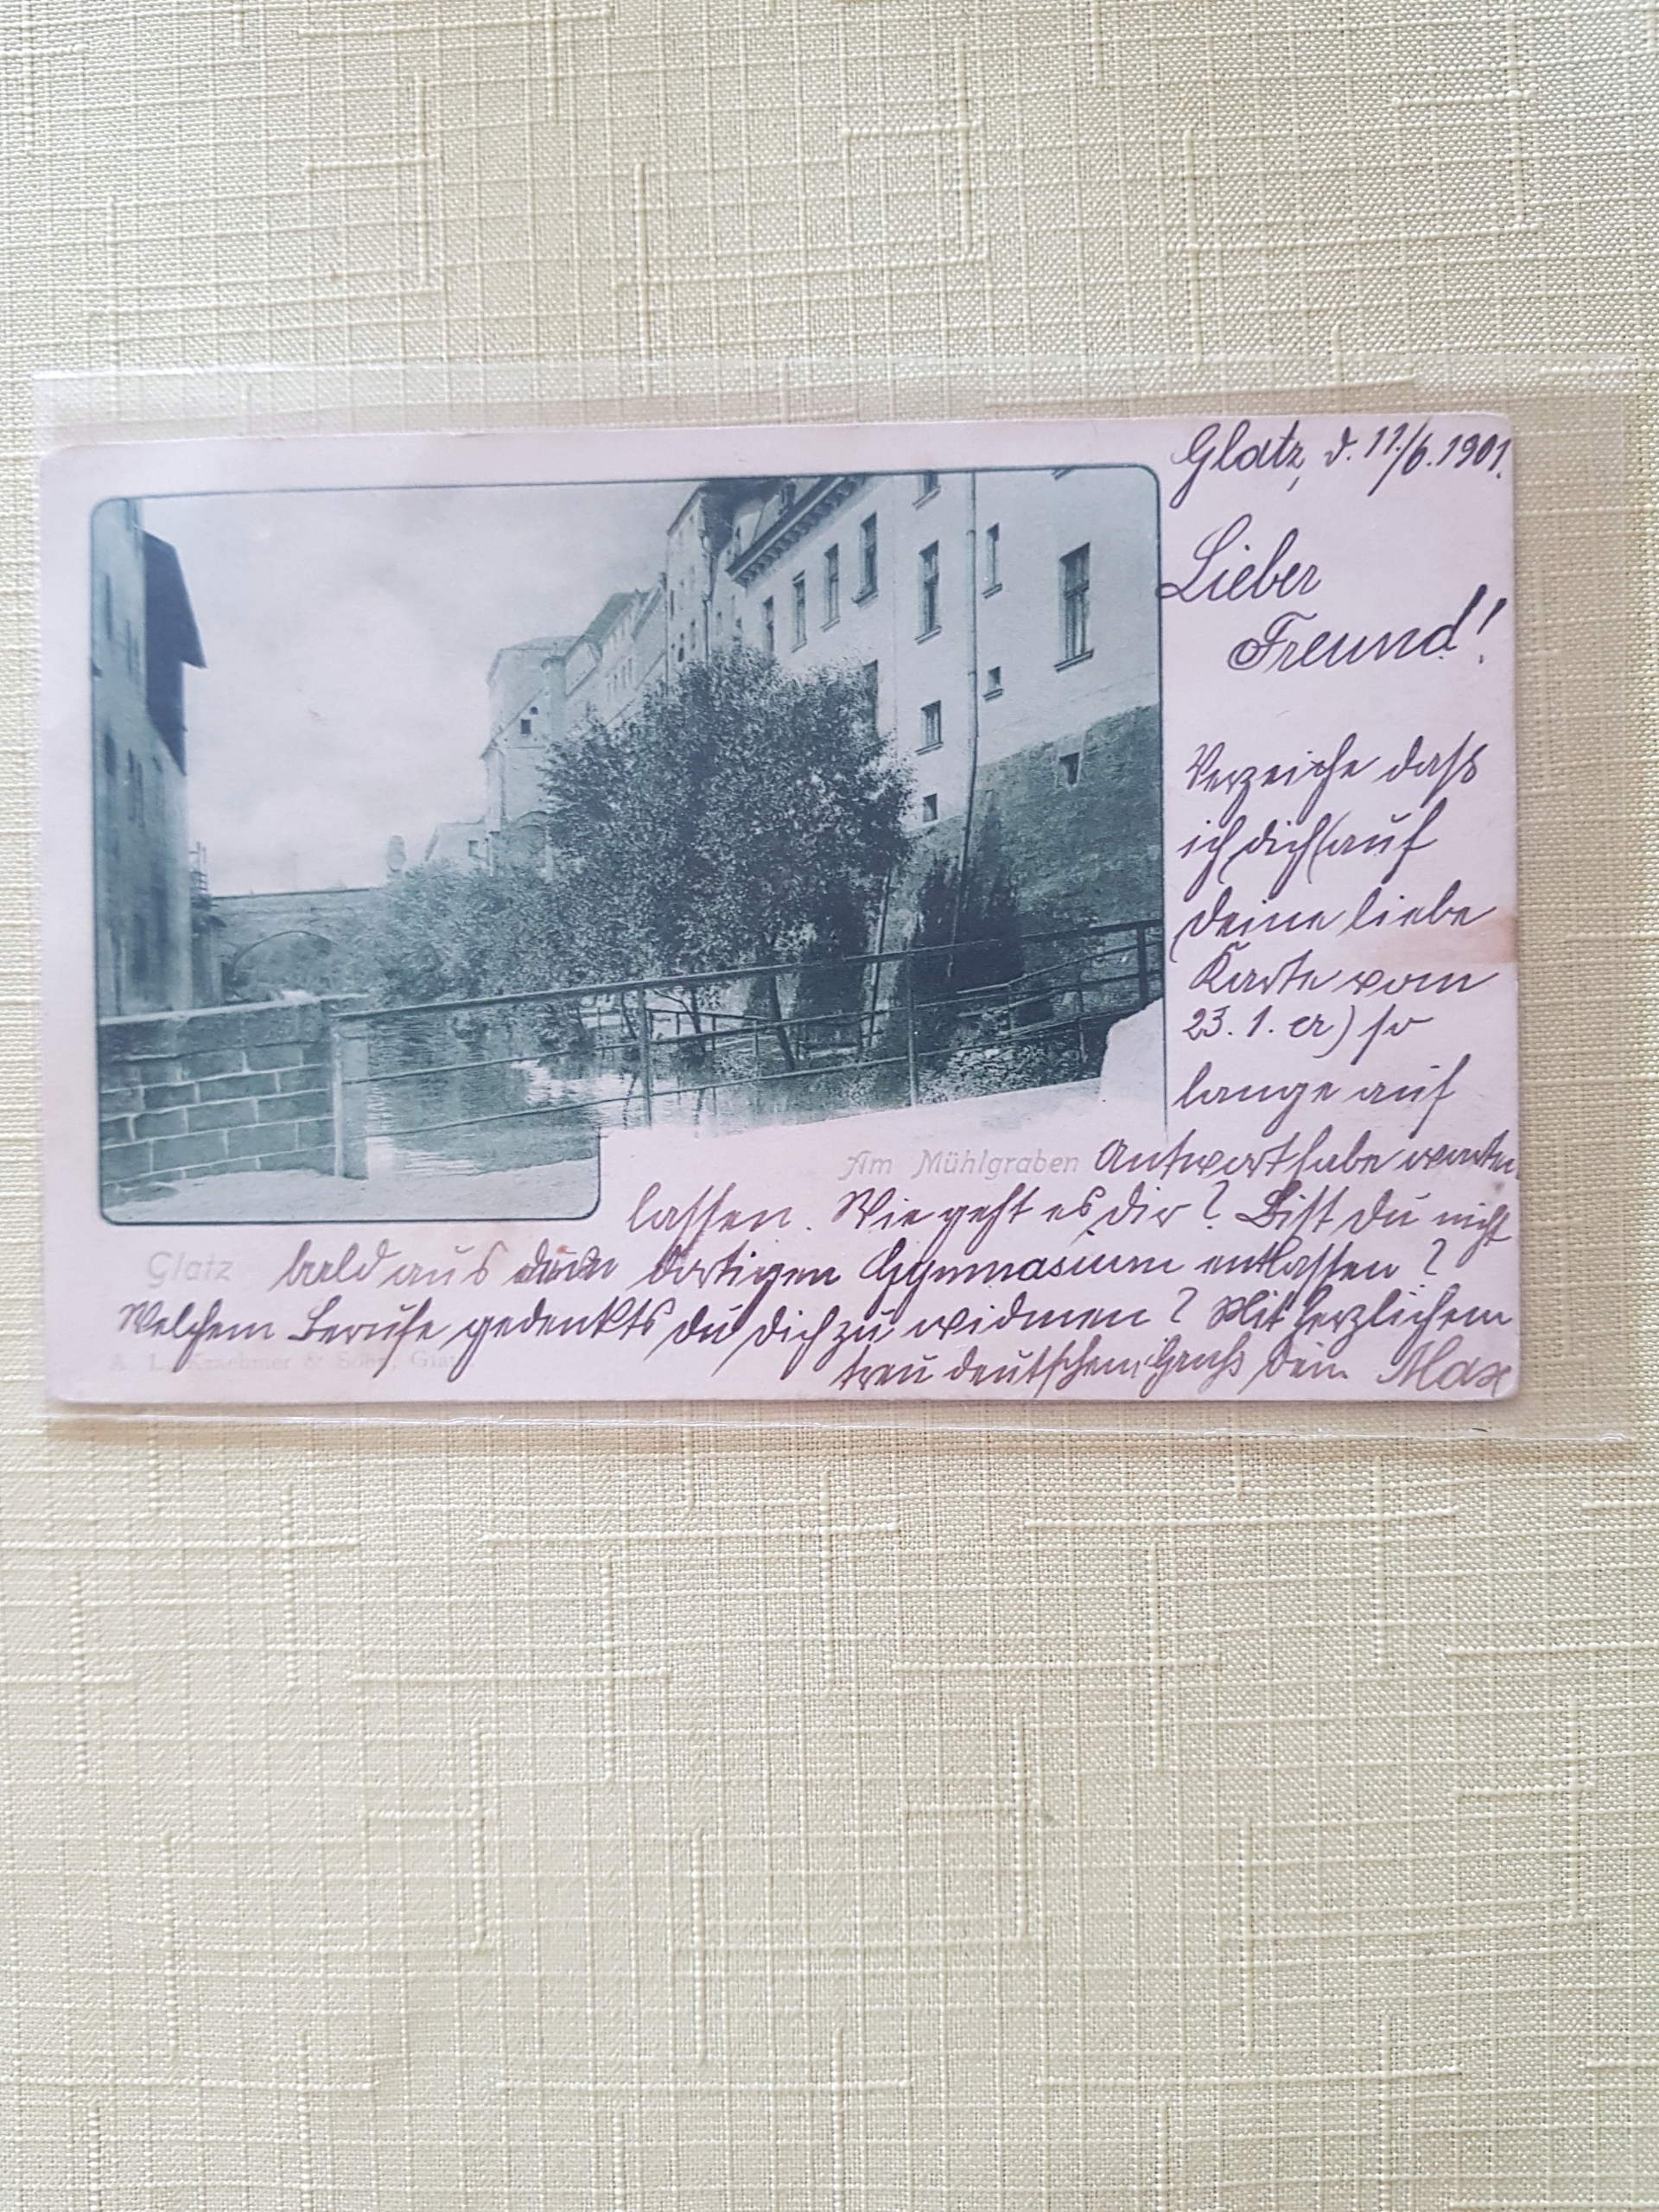 Glatz, d. 11./6. 1901.
Lieber
Freund!
Verzeihe dass
ich dich (auf
deine liebe
Karte vom
23. 1. cr) so
lange auf
Am Mühlgraben
Antwort habe warten
lassen. Wie geht es dir? Bist du nicht
Glatz
bald aus dortigen Gymnasium entlassen?
Welchem Berufe gedenkts du dich zu widmen? Mit herzlichem
A. L. Kraehmer & Sohn, Glatz
treu deutschem Gruß dein Max